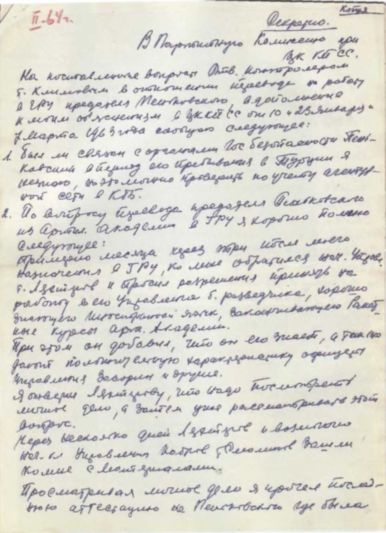 Копия
II-64г.
Секретно.
В Партийную Комиссию при
ЦК КПСС.
На поставленные вопросы Отв. контролером
т. Климовым в отношении перевода на работу
в ГРУ предателя Пеньковского, в дополнение
к моим объяснениям в ЦК КПСС от 10 и 25 января и
7 марта 1963 года сообщаю следующее:
1. Был ли связан с органами Гос безопасности Пень-
ковский в период его пребывания в Турции я
не знаю,
сети в КГБ.
2. По вопросу перевода предателя Пеньковского
из Артил. Академии в ГРУ я хорошо помню
следующее:
Примерно месяца через три после моего
назначения в ГРУ, ко мне обратился нач. Управ.
т. и просил разрешения принять на
работу в его Управление т. разведчика, хорошо
знающего язык, заканчивающего Ракет-
ные курсы арт. Академии.
При этом он добавил, что он его знает, а также
дают положительную характеристику офицеры
Управления и другие.
Я ответил что надо посмотреть
личное дело, а затем уже рассматривать этот
вопрос.
Через несколько дней и
нач-к Управления кадров Смоликов зашли
ко мне с материалами.
Просматривая личное дело я прочел послед-
нюю аттестацию на Пеньковского где была